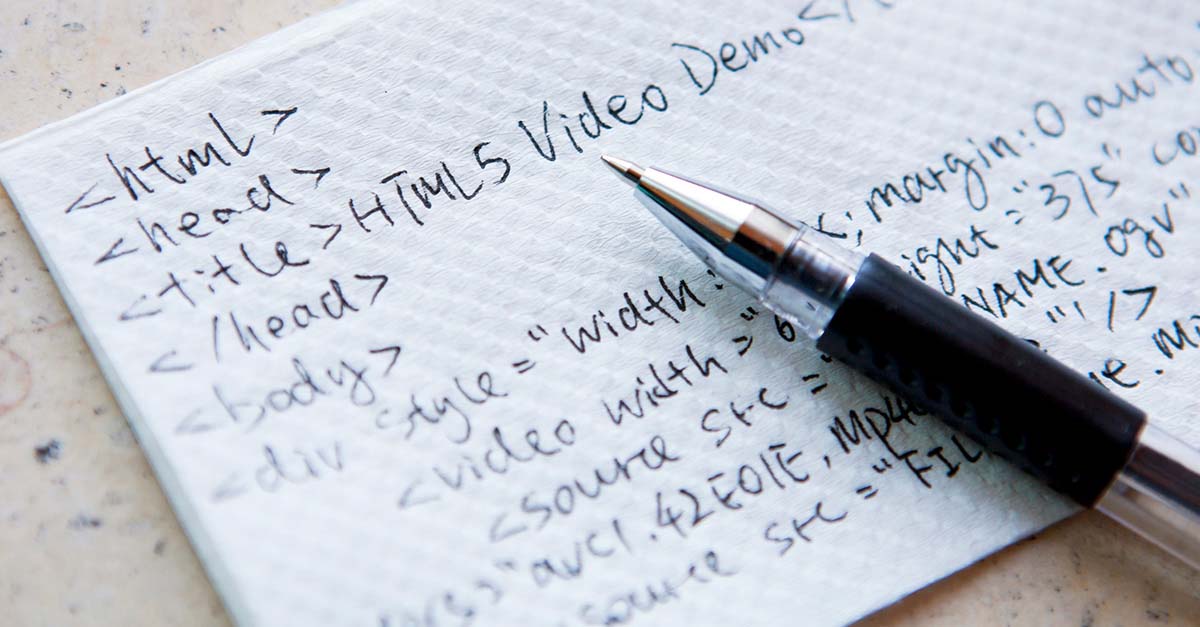 <html>
<head>
<title>HTML5 Video Demo</
</head>
<body>
<div style="width: ; margin:0 auto
<video width="6 ight="375" co
<source src=" NAME.ogv"
"avc1.42E01E, mp4 "' />
source src="FIL e.m